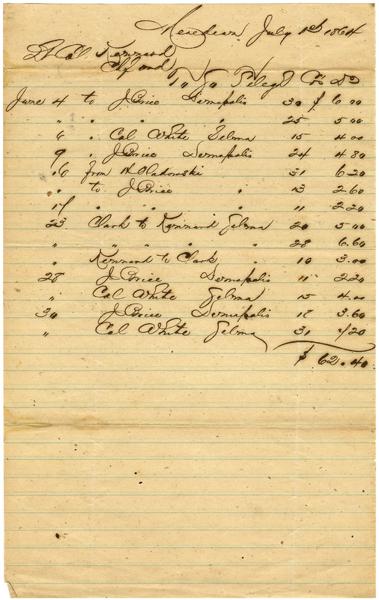 Meridian July 1st 1864
Lt Col Kennard
To N O Telegh Co Dr
June 4 to J Price Demopolis 30 $ 6.00
" " " " " 25 5.00
6 " Col White Selma 15 4.00
9 " J Price Demopolis 24 4.80
16 from H Oladowski 31 6.20
" to J Price " 13 2.60
17 " " " " 11 2.20
23 Clark to Kennard Selma 20 5.00
" " " " " 28 6.60
" Kennard to Clark " 10 3.00
28 J Price Demopolis 11 2.20
" Col White Selma 15 4.00
30 J Price Demopolis 18 3.60
" Col White Selma 31 7.20
$ 62.40